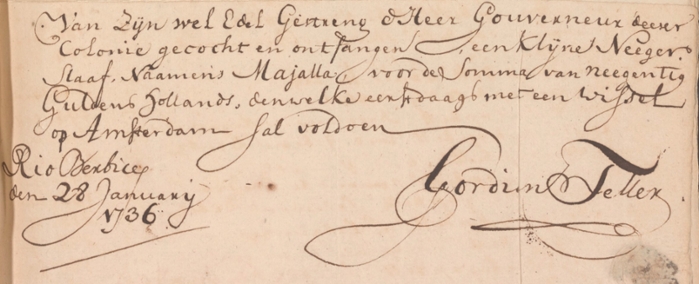 Van Zijn wel Edel Gestreng d'Heer Gouverneur deeser
Colonie gecocht en ontfangen, een Klijne Neeger
Slaaf, Naamens Majalla, voor de Somma van neegentig
Guldens hollands, denwelke eerstdaags met een wissel
op Amsterdam sal voldoen
Rio Berbice
den 28 Januarij
1736
Gordian Teller